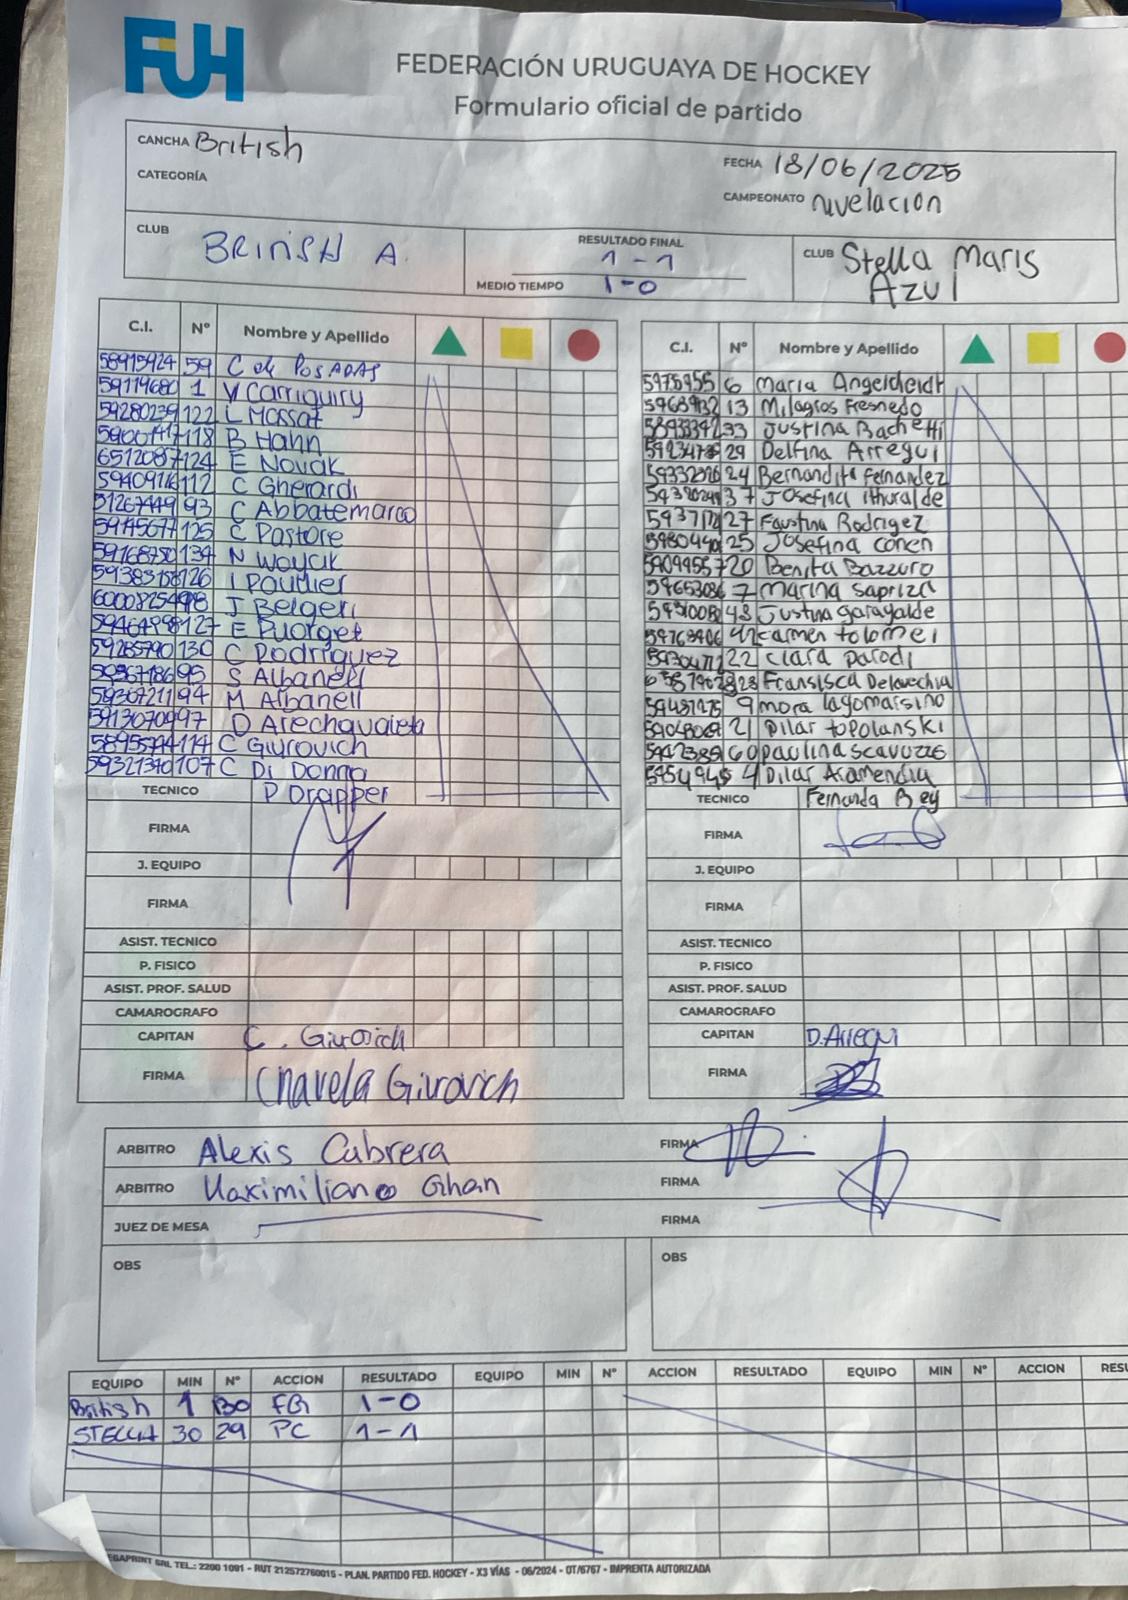 FUH
FEDERACIÓN URUGUAYA DE HOCKEY
Formulario oficial de partido
CANCHA British
FECHA 18/06/2025
CATEGORÍA
CAMPEONATO nivelacion
CLUB BRITISH A.
RESULTADO FINAL 1-1
MEDIO TIEMPO 1-0
CLUB Stella Maris Azul
C.I. Nº Nombre y Apellido
58915924 59 C de POSADAS
59119680 1 V Carriquiry
59280239 122 L Massat
118 B Hahn
6512087 124 E Novak
112 C Gherardi
51267449 93 C Abbatemarco
59145677 125 C Pastore
59168750 134 N Woycik
126 I Paullier
J Belgeri
127 E Puorget
59285790 130 C Rodriguez
95 S Albanell
59307211 94 M Albanell
59130709 97 D Arechavaleta
114 C Giurovich
59321340 107 C Di Donna
TECNICO P Drapper
FIRMA
J. EQUIPO
FIRMA
ASIST. TECNICO
P. FISICO
ASIST. PROF. SALUD
CAMAROGRAFO
CAPITAN C. Giurovich
FIRMA Chavela Giurovich
C.I. Nº Nombre y Apellido
5975955 6 Maria Angelcheidt
13 Milagros Fresnedo
33 Justina Bachetti
29 Delfina Arregui
24 Bernardita Fernandez
37 Josefina ithuralde
27 Faustina Rodrigez
25 Josefina conen
5909955 20 Benita Bazzuro
59653086 7 Marina sapriza
48 Justina garagalde
carmen tolomei
22 clara parodi
28 Fransisca Delavechia
9 mora lagomarsino
21 pilar topolanski
60 paulina scavuzzo
4 Pilar Aramendia
TECNICO Fernanda Rey
FIRMA
J. EQUIPO
FIRMA
ASIST. TECNICO
P. FISICO
ASIST. PROF. SALUD
CAMAROGRAFO
CAPITAN D.Arregui
FIRMA
ARBITRO Alexis Cabrera FIRMA
ARBITRO Maximiliano Ghan FIRMA
JUEZ DE MESA FIRMA
OBS
OBS
EQUIPO MIN Nº ACCION RESULTADO EQUIPO MIN Nº ACCION RESULTADO EQUIPO MIN Nº ACCION RESU
British 1 130 FG 1-0
STELLA 30 29 PC 1-1
EGAPRINT SRL TEL.: 2200 1091 - RUT 212572760015 - PLAN. PARTIDO FED. HOCKEY - X3 VÍAS - 06/2024 - OT/6767 - IMPRENTA AUTORIZADA